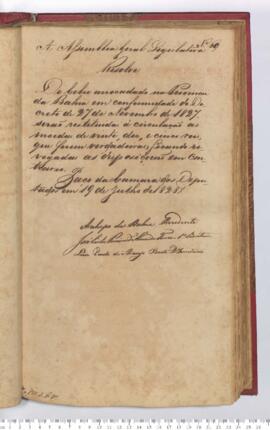 A Assemblea Geral Legislativa
Resolve
Do Cobre arrecadado na Provincia
da Bahia em conformidade do De
creto de 27 de Novembro de 1827
serão restituidas á circulação as
moedas de vinte, dez, e cinco reis,
que forem verdadeiras; ficando re
vogadas as disposições em con
trario.
Paço da Camara dos Depu
tados em 19 de Julho de 1828
da Bahia Presidente
José
Luis de Araujo